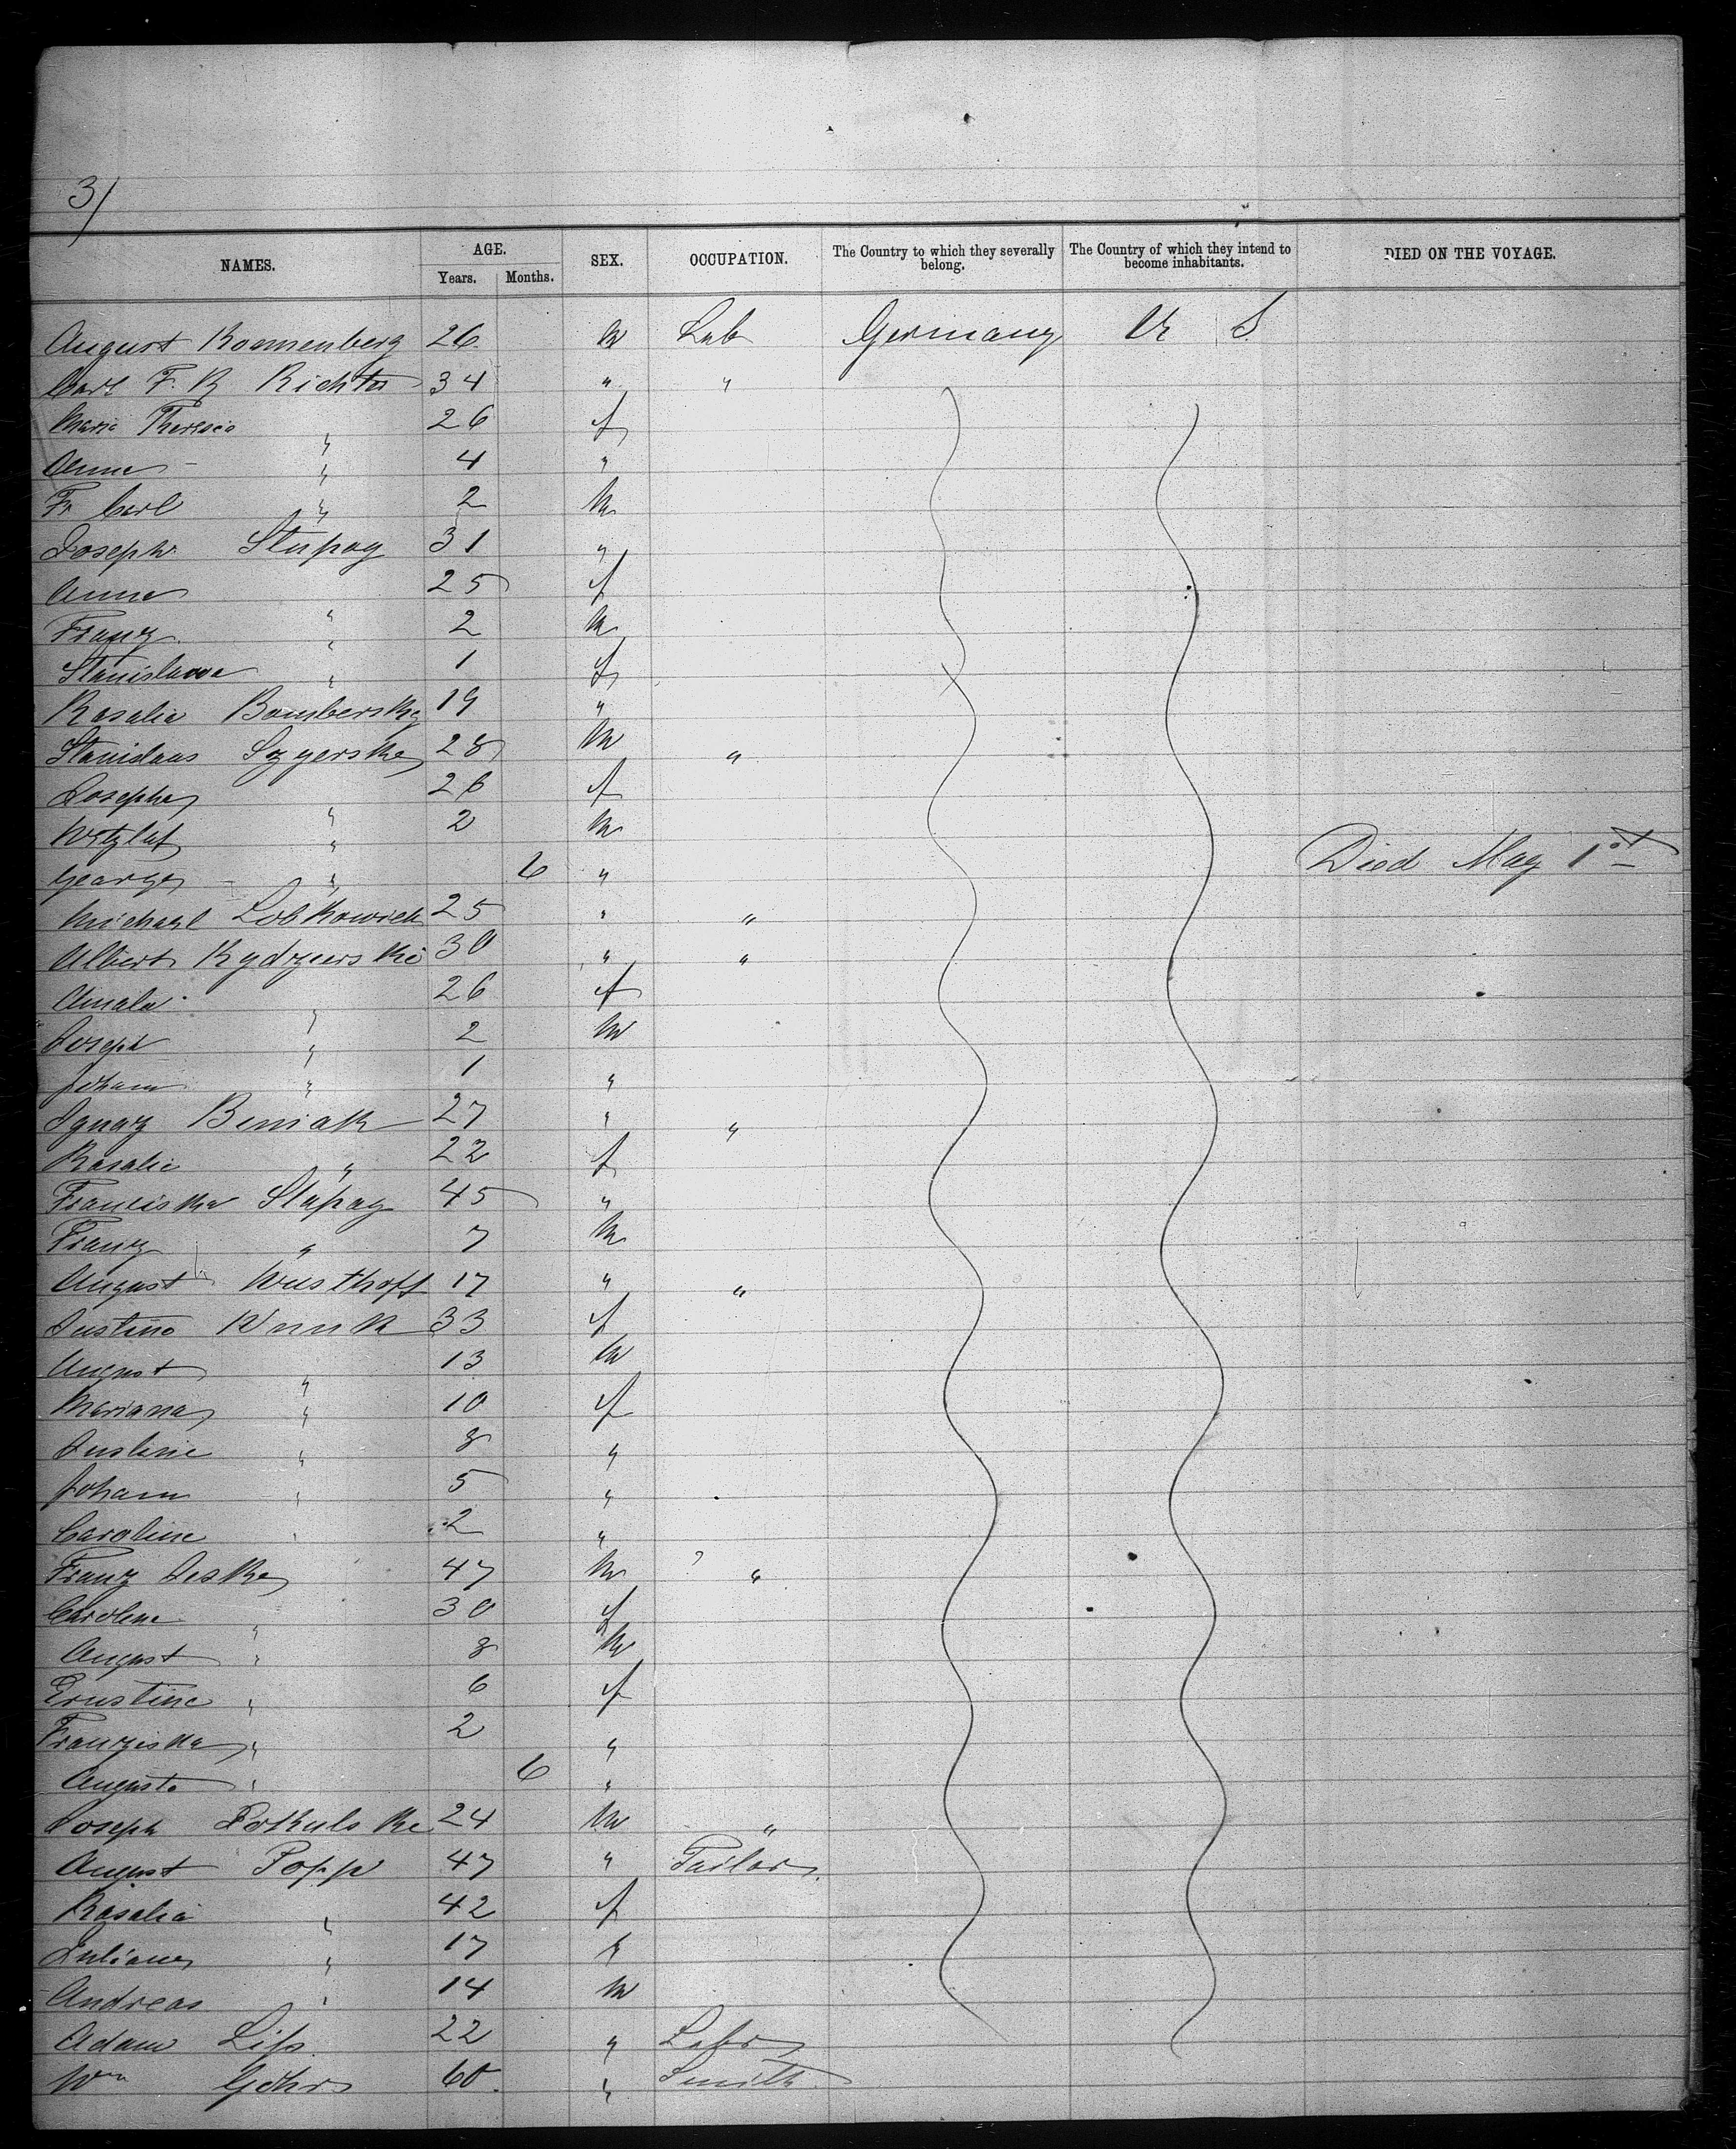 3/
NAMES. AGE. Years. Months. SEX. OCCUPATION. The Country to which they severally belong. The Country of which they intend to become inhabitants. DIED ON THE VOYAGE.
August Ronnenberg 26 M Lab Germany U S
Carl F. R Richter 34 " "
Maria Theresia " 26 f
Anna " 4 "
Fr Carl " 2 M
Joseph Stupay 31 "
Anna " 25 f
Franz " 2 M
Stanislawa " 1 f
Rosalie Bombersky 19 "
Stanislaus 28 M "
Josepha " 26 f
" 2 M
George " 6 " Died May 1st
Michael Lobkowich 25 " "
Albert 30 " "
Amala " 26 f
Joseph " 2 M
Johann " 1 "
Ignaz Beniak 27 " "
Rosalie " 22 f
Franciska Stupay 45 "
Franz " 7 M
August Wusthoff 17 " "
Justine 33 f
August " 13 M
Mariana " 10 f
Justine " 8 "
Johann " 5 "
Caroline " 2 "
Franz Jeske 47 M ? "
Caroline " 30 f
August " 8 M
Ernstine " 6 f
Franziska " 2 "
Auguste " 6 "
Joseph Pokulske 24 M "
August Popp 47 " Tailor
Rosalia " 42 f
Juliane " 17 f
Andreas " 14 M
Adam Lips 22 " Labr
Wm Gohr 60 " Smith